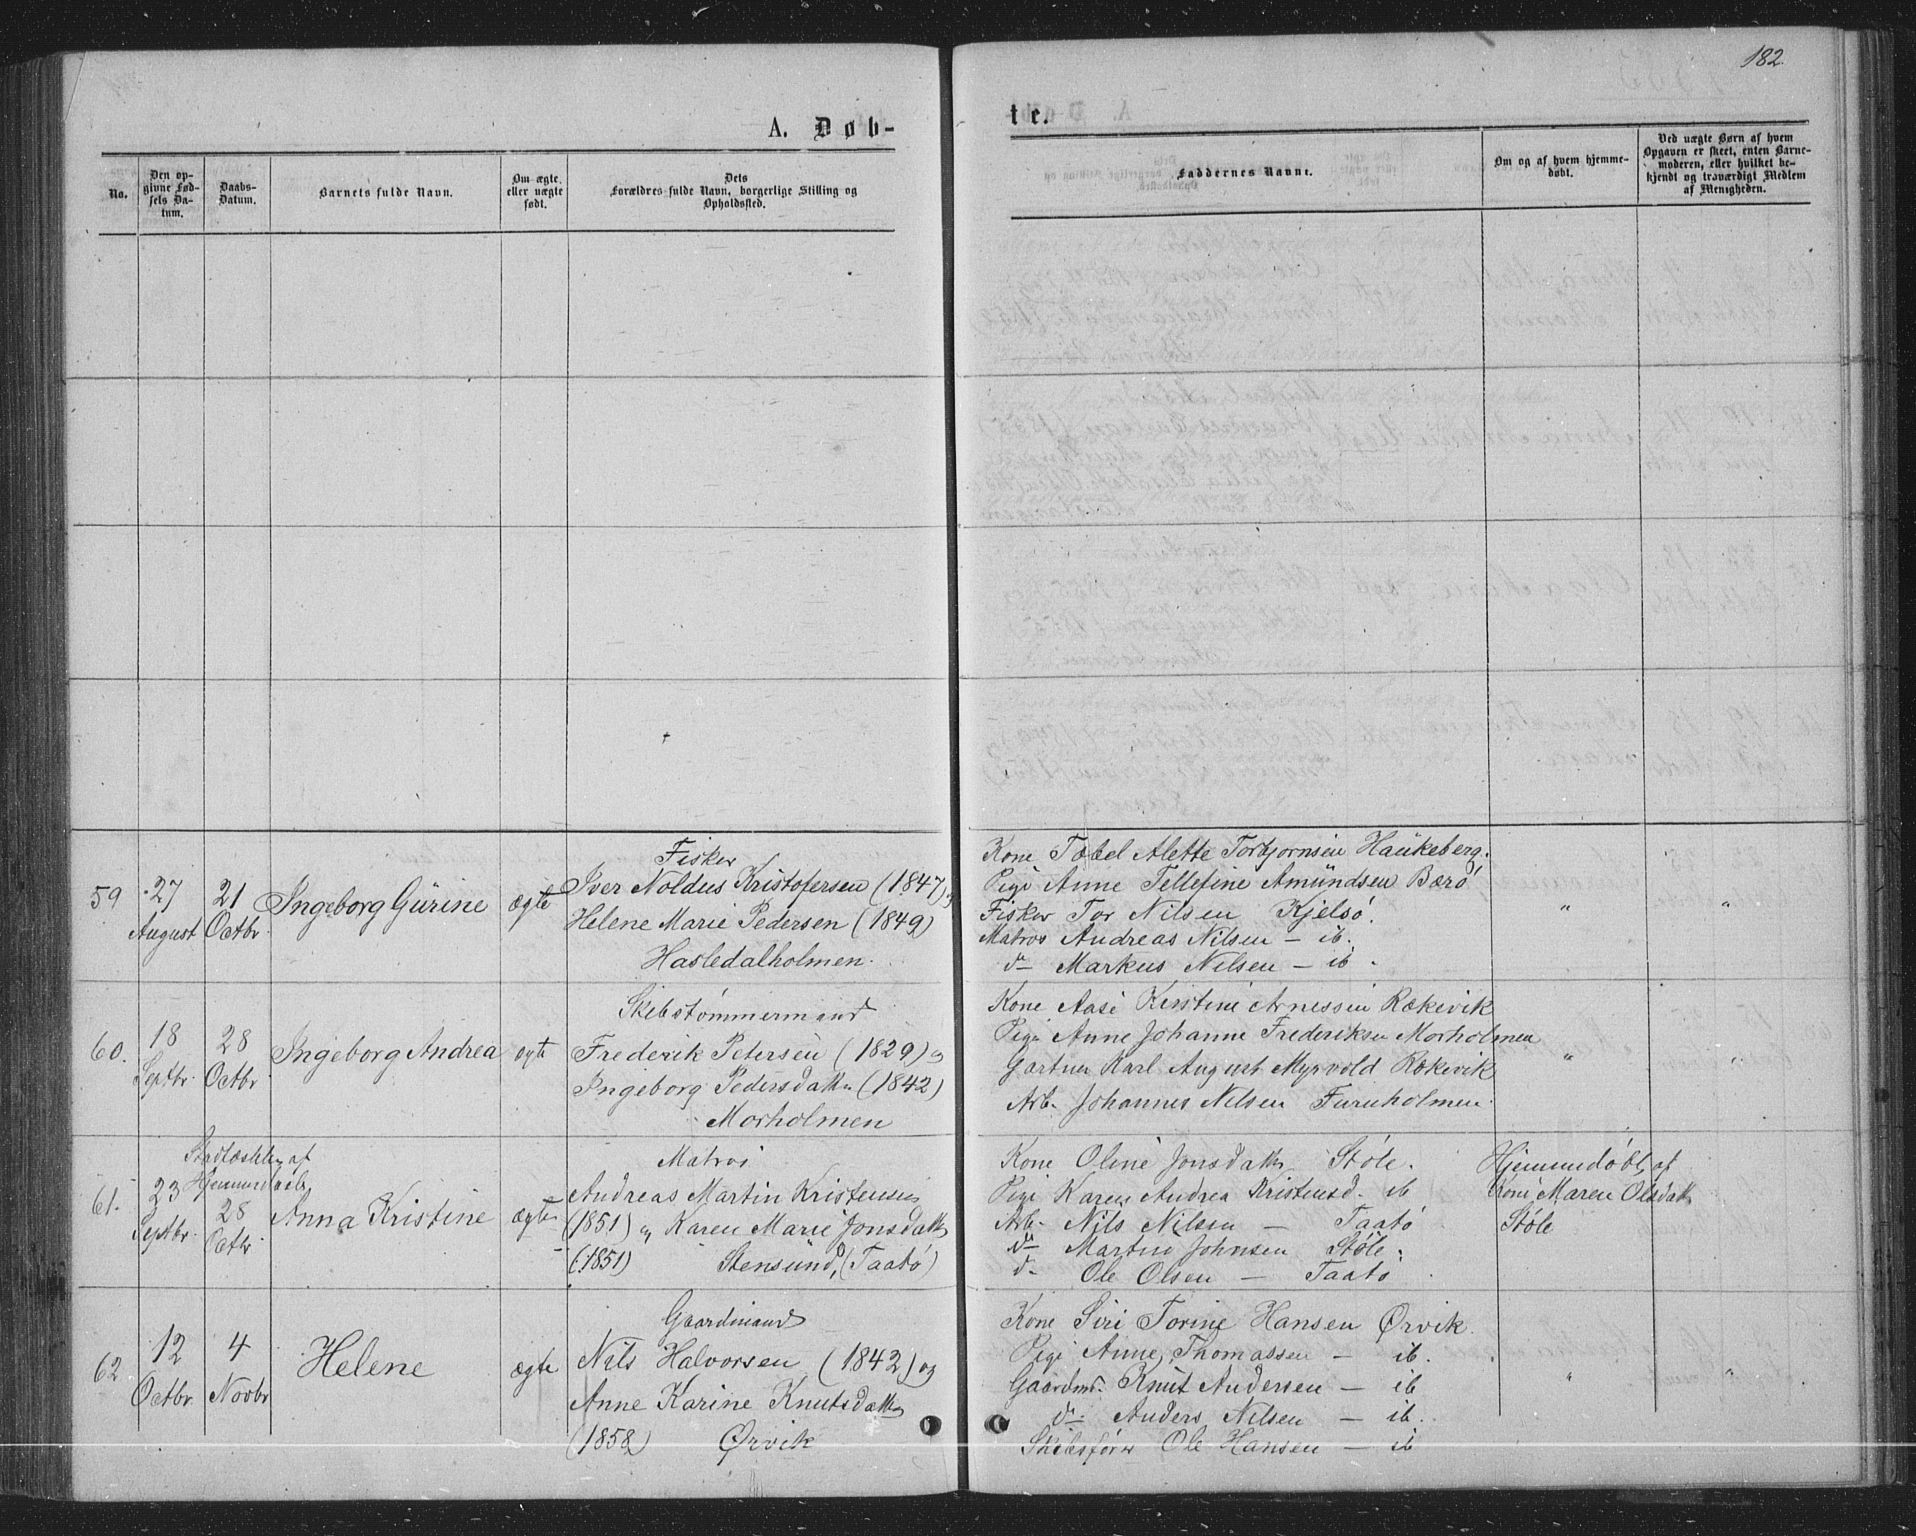 182.
A. Døb-
te.
No.
Den op-
givne Fød-
sels Da-
tum.
Daabs-
Datum.
Barnets fulde Navn.
Om ægte
eller uægte
født.
Dets
Forældres fulde Navn, borgerlige Stilling og
Opholdssted.
Faddernes Navne.
Om og af hvem hjemme-
døbt.
Ved uægte Børn af hvem
Opgaven er skeet, enten Barne-
moderen, eller hvilket be-
kjendt og troværdigt Medlem
af Menigheden.
59
27
August
21
Octbr.
Ingeborg Gürine
ægte
Fisker
Iver Noldus Kristofersen (1847) og
Helene Marie Pedersen (1849)
Hasledalholmen.
Kone Tabel Alette Torbjornsen Haukeberg.
Pige Anne Tellefine Amündsen Barö
Fisker Tor Nilsen Kjelsö.
Matros Andreas Nilsen — ib.
do Markus Nilsen — ib.
"
"
60.
18
Septbr.
28
Octbr
Ingeborg Andrea
ægte
Skibstømmermand
Frederik Petersen (1829) og
Ingeborg Pedersdatter (1842)
Morholmen
Kone Aase Kirstine Arnessen Rækevik
Pige Anne Johanne Frederiksen Morholmen
Gartner Karl August Myrvold Rækevik
Arb. Johannes Nilsen Furuholmen.
"
"
61.
23
Septbr.
af
28
Octbr.
Anna Kristine
ægte
Matros
Andreas Martin Kristensen
(1851) og Karen Marie Jonsdatter
(1851) Stensünd, (Taatö)
Kone Oline Jonsdatter Støle.
Pige Karen Andrea Kristensd. ib
Arb. Nils Nilsen — Taatö
do Martin Johnsen Støle.
do Ole Olsen — Taatö
Hjemmedøbt af
Kone Maren Olsdatter
Støle
62
12
Octbr
4
Novbr
Helene
ægte
Gaardmand
Nils Halvorsen (1842) og
Anne Karine Knutsdatter
(1858) Ørvik
Kone Siri Torine Hansen Ørvik.
Pige Anne Thomassen — ib.
Gaardmd. Knut Andersen — ib
do Anders Nilsen — ib.
Skibsfører Ole Hansen — ib
"
"